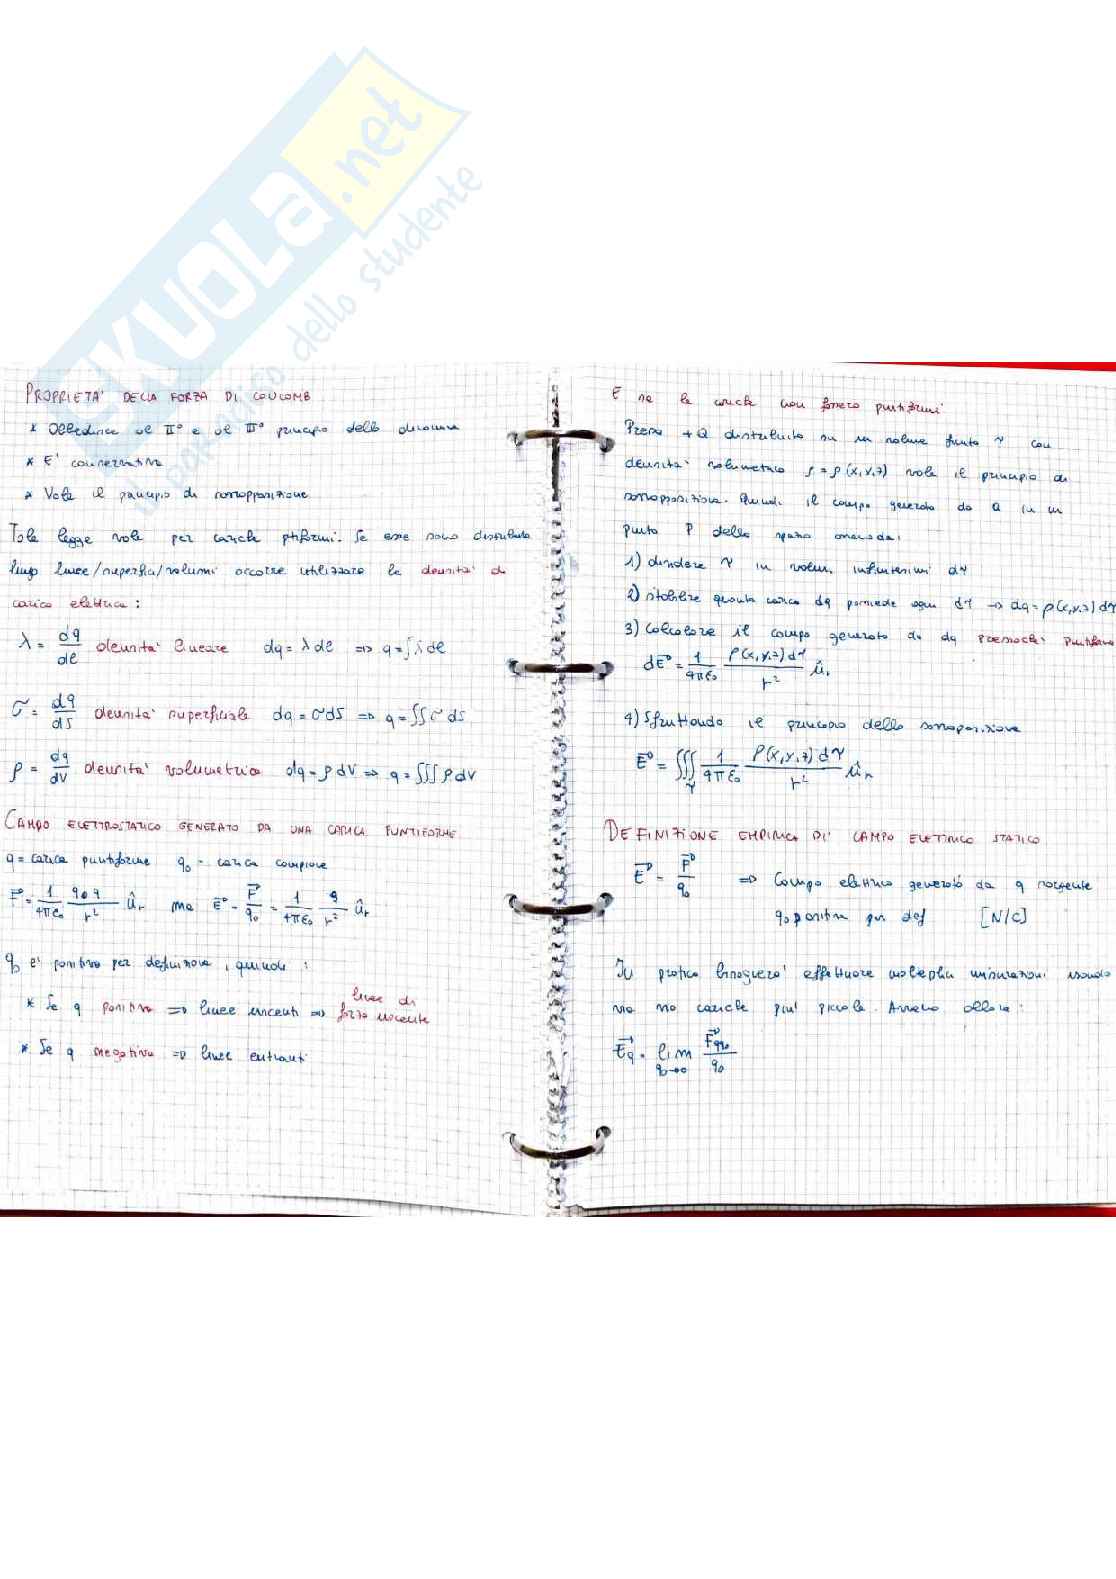 SKUOLA.net
il paradiso dello studente
PROPRIETA' DELLA FORZA DI COULOMB
* Obbedisce al II° e al III° principio della dinamica
* E' conservativa
* Vale il principio di sovrapposizione
Tale legge vale per cariche ptiformi. Se esse sono distribuite
lungo linee/superfici/volumi occorre utilizzare la densità di
carica elettrica:
λ = dq/dl densità lineare dq = λ dl => q = ∫ λ dl
σ = dq/dS densità superficiale dq = σ dS => q = ∬ σ dS
ρ = dq/dV densità volumetrica dq = ρ dV => q = ∭ ρ dV
CAMPO ELETTROSTATICO GENERATO DA UNA CARICA PUNTIFORME
q = carica puntiforme q₀ = carica campione
F⃗ = 1/4πε₀ q₀q/r² ûr ma E⃗ = F⃗/q₀ = 1/4πε₀ q/r² ûr
q₀ e' positiva per definizione, quindi:
* Se q positiva => linee uscenti => linee di forza uscente
* Se q negativa => linee entranti
E se le cariche non fossero puntiformi
Presa +Q distribuita su un volume finito τ con
densita' volumetrica ρ = ρ(x,y,z) vale il principio di
sovrapposizione. Quindi il campo generato da Q in un
punto P dello spazio
1) dividere τ in volumi infinitesimi dτ
2) stabilire quanta carica dq possiede ogni dτ -> dq = ρ(x,y,z) dτ
3) Calcolare il campo generato da dq puntiforme
dE⃗ = 1/4πε₀ ρ(x,y,z)dτ/r² ûr
4) Sfruttando il principio della sovrapposizione
E⃗ = ∭τ 1/4πε₀ ρ(x,y,z)dτ/r² ûr
DEFINIZIONE EMPIRICA DI' CAMPO ELETTRICO STATICO
E⃗ = F⃗/q₀ => Campo elettrico generato da q sorgente
q₀ positiva per def [N/C]
In pratica bisognera' effettuare molteplici misurazioni usando
via via cariche piu' piccole. Avremo allora:
E⃗q = lim q₀→0 F⃗qq₀/q₀